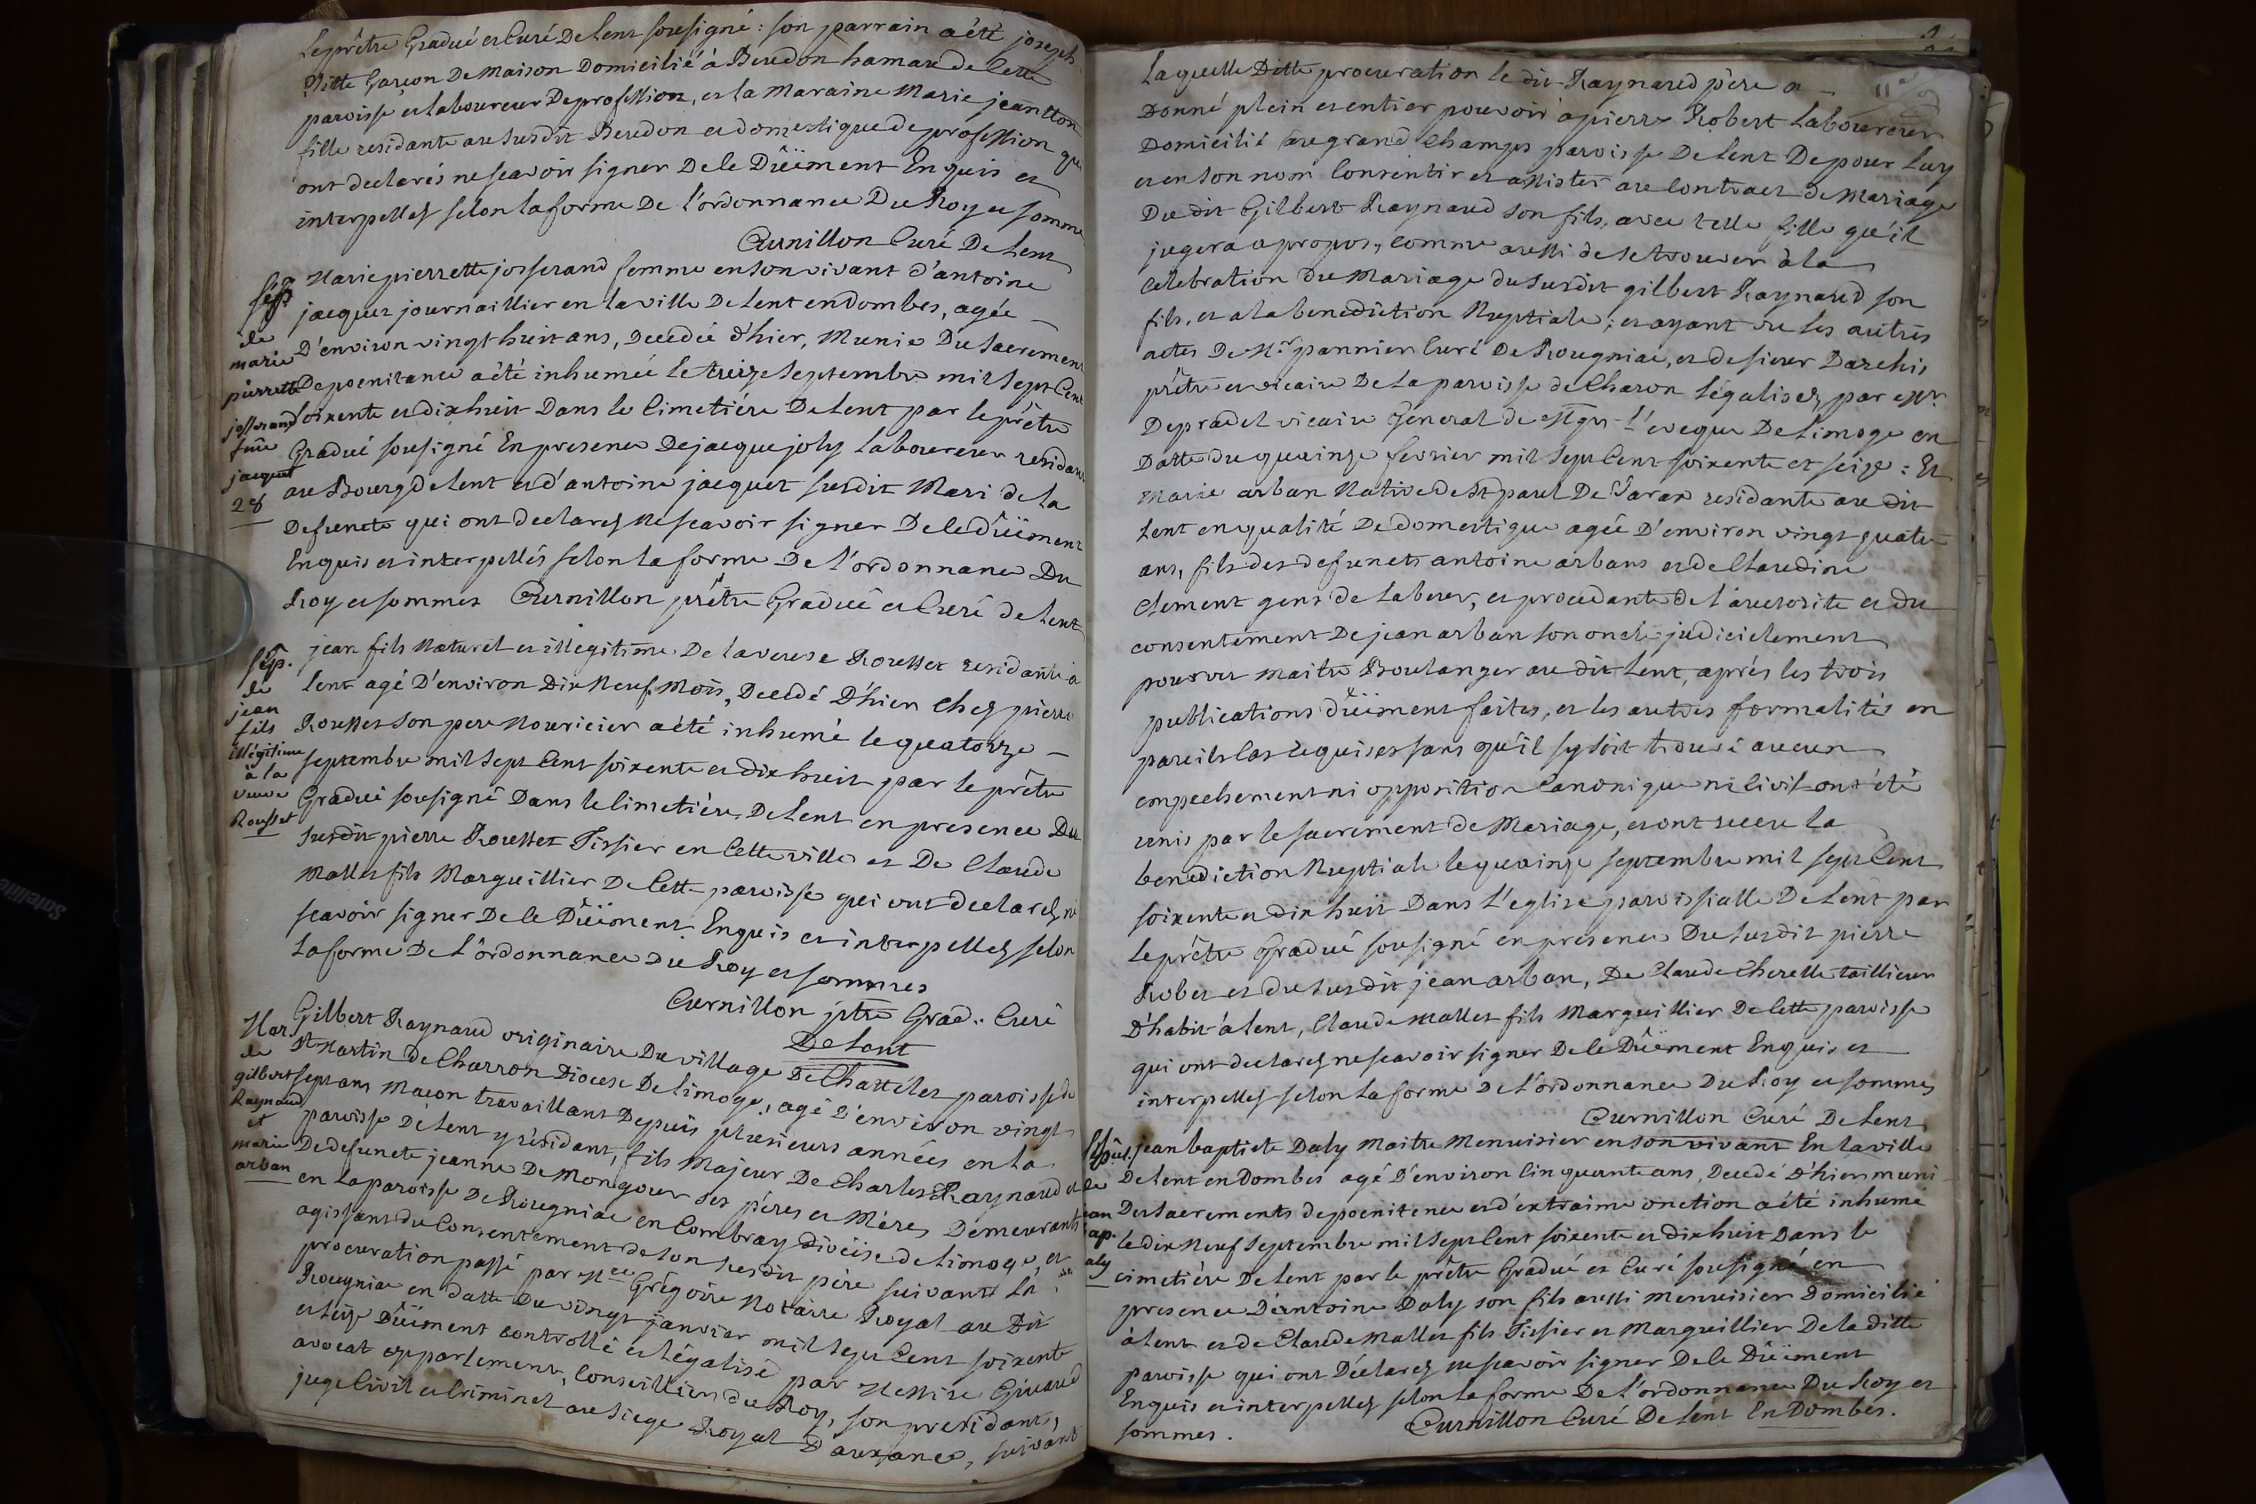 Le prêtre Gradué et Curé De Lent sousigné : son parrain a été joseph
Pitte Garcon De maison Domicilié à Beredon hamau de Cette
paroisse et laboureur De profession, et la Maraine Marie jeantton
fille residante au susdit Beredon et domestique de profession qui
ont declarés ne scavoir signer De le Düëment Enquis et
interpellez selon la forme De l'ordonnance Du Roy et somme
Curnillon Curé De Lent
Sep.
de
marie
pierrette
josserand
fme
jacquet
28
Marie pierrette josserand femme en son vivant d'antoine
jacquet journaillier en la ville De Lent en dombes, agée
D'environ vingt huit ans, Decedée d'hier, Munie Du Sacrement
De poenitance a été inhumée le treize Septembre mil sept Cent
soixente et dix huit Dans le Cimetière De Lent par le prêtre
Gradué sousigné En presence De jacque joly Laboureur residant
au Bourg de Lent et d'antoine jacquet susdit Mari de la
Defuncte qui ont declarez ne scavoir signer De le düëment
Enquis et interpellés selon la forme De l'ordonnance Du
Roy et sommes Curnillon prêtre Gradué et Curé de Lent
Sep.
de
jean
fils
illégitime
à la
veuve
Rousset
jean fils Naturel et illegitime De la veuve Rousset residante à
Lent agé D'environ Dix Neuf Mois, Decedé D'hier chez pierre
Rousset son pere Nouricier a été inhumé le quatorze
septembre mil sept Cent soixente et dix huit par le prêtre
Gradué sousigné Dans le Cimetière De Lent en presence Du
susdit pierre Rousset Tissier en Cette ville et De Claude
Mallet fils Marguillier De Cette paroisse qui ont declarez ne
scavoir signer De le Düëment Enquis et interpellez selon
la forme De L'ordonnance du Roy et sommes
Curnillon ptre Grad.. Curé
De Lent
Mar.
de
gilbert
Raynaud
et
marie
arban
Gilbert Raynaud originaire Du village De Chattelet paroisse de
St Martin de Charron Diocese De Limoge, agé D'environ vingt
sept ans Macon travaillant Depuis plusieurs années en la
paroisse De Lent y résidant, fils Majeur De Charles Raynaud et
De defuncte jeanne De Mongour ses péres et Méres Demeurants
en la paroisse De Rougniac en Combray Diocèse de Limoge, et
agissant du Consentement de son susdit père suivant la
procuration passé par Mre Grégoire Notaire Royal au Dit
Rougniac en datte Du vingt janvier mil sept Cent soixente
et seize Düëment controllé et légalisé par Messire Giraud
avocat en parlement, Conseillier du Roy, son president,
juge Civil et Criminel au siege Royal D'auzance, suivant
11e
Laquelle Ditte procuration le dit Raynaud père a
Donné plein et entier pouvoir à pierre Robert Laboureur
Domicilié au grand Champs paroisse De Lent De pour Luy
et en son nom Consentir et assister au Contract de Mariage
Du dit Gilbert Raynaud son fils, avec telle fille qu'il
jugera apropos, Comme aussi de se trouver à la
Celebration du Mariage du susdit gilbert Raynaud son
fils, et a la benediction Nuptiale ; et ayant vu les autres
actes De Mr pannier Curé De Rougniac, et de sieur Darchis
prêtre et vicaire De la paroisse de Charon légalisez par Mr
De pradel vicaire General de Mgr L'eveque De Limoge en
Datte du quainze fevrier mil sept Cent soixente et seize : Et
Marie arban Native de St paul De Varax residante au dit
Lent en qualité De domestique agée D'environ vingt quatre
ans, fils des defuncts antoine arbans et de Claudine
Clement gens de Labeur, et procedante de l'auctorité et du
consentement De jean arban son oncle judicielement
pourvu maitre Boulanger au dit Lent, aprés les trois
publications düëment faites, et les autres formalités en
pareils Cas requises sans qu'il sy soit trouvé aucun
empechement ni opposition Canonique ni Civil ont été
unis par le sacrement de Mariage, et ont recue la
benediction Nuptiale le quainze septembre mil sept Cent
soixente et dix huit Dans L'eglise paroissialle De Lent par
le prêtre Gradué sousigné en presence Du susdit pierre
Robet et du susdit jean arban, De Claude Cherelle taillieur
D'habit à Lent, Claude Mallet fils Marguillier De Cette paroisse
qui ont declarez ne scavoir signer De le Düëment Enquis et
interpellez selon la forme De L'ordonnance Du Roy et sommes
Curnillon Curé De Lent
Sépul.
de
jean
bap.
daly
jean baptiste Daly Maitre Menuisier en son vivant En la ville
De Lent en Dombes agé D'environ Cinquante ans, Decedé D'hier muni
Des sacrements de poenitence et d'extraime onction a été inhumé
le dix Neuf septembre mil sept Cent soixente et dix huit Dans le
cimetière De Lent par le prêtre Gradué et Curé sousigné en
presence D'antoine Daly son fils aussi menuisier Domicilié
a Lent et de Claude Mallet fils Tissier et Marguillier De la ditte
paroisse qui ont Déclarez ne scavoir signer De le Düëment
Enquis et interpellez selon la forme De L'ordonnance Du Roy et
sommes. Curnillon Curé De Lent En Dombes.